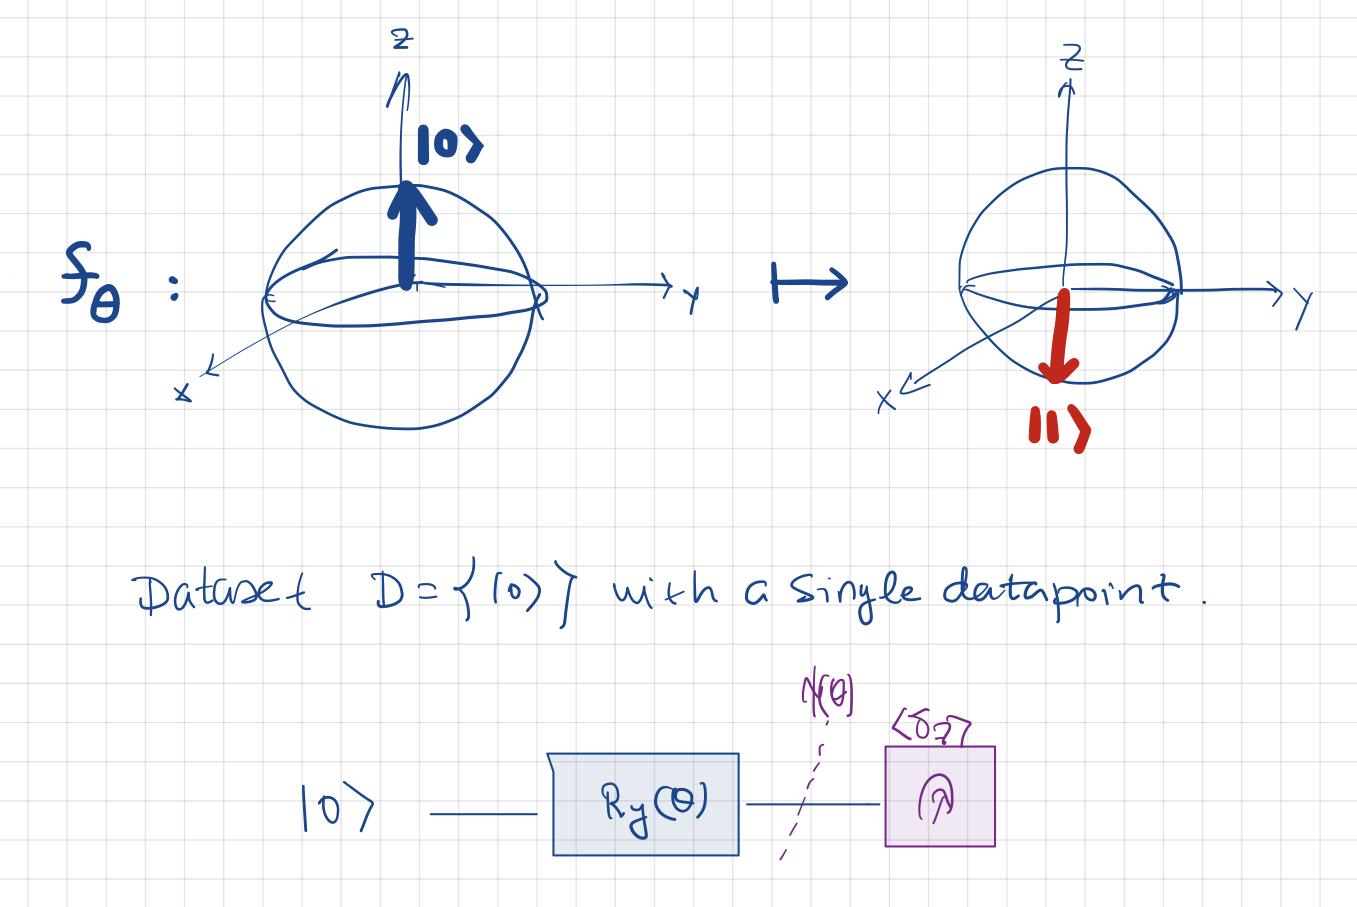 Z
Z
|0⟩
f_θ :
↦
Y
Y
X
X
|1⟩
Dataset D = {|0⟩} with a single datapoint.
ψ(θ)
⟨σz⟩
|0⟩
Ry(θ)